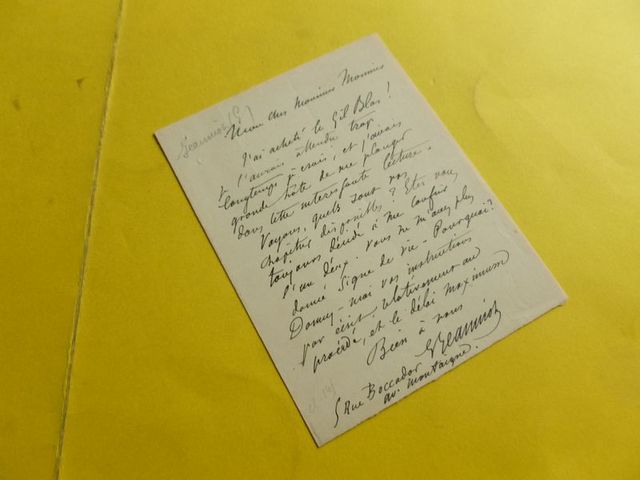 Jeanniot (G)
Mon cher Monsieur Monnier
J'ai acheté le Gil Blas !
Je l'aurais attendu trop
longtemps je crois, et j'avais
grande hâte de me plonger
dans cette intéressante lecture.
Voyons, quels sont vos
chapitres disponibles ? Etes vous
toujours décidé à me confier
l'un d'eux. Vous ne m'avez plus
donné signe de vie - Pourquoi ?
Donnez-moi vos instructions
par écrit, relativement au
procédé, et le délai maximum
Bien à vous
G Jeanniot
5 Rue Boccador
av. Montaigne.